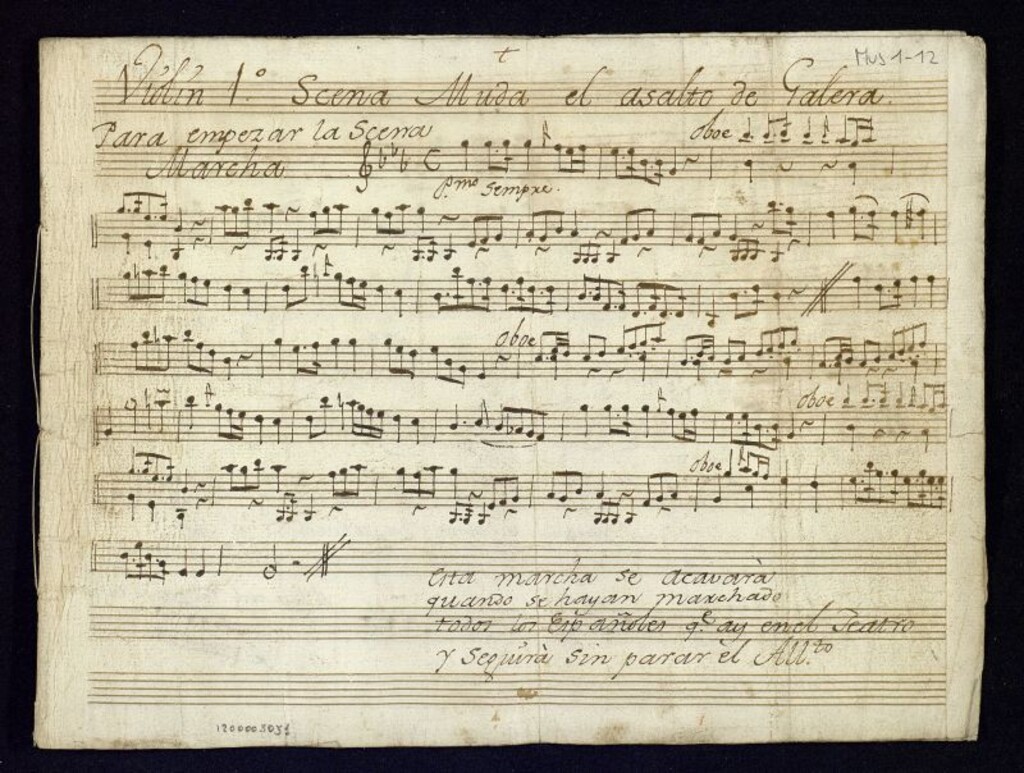 Mus 1-12
Violin 1.º Scena Muda el asalto de Galera.
Para empezar la Scena
oboe
Marcha
P.mo sempre.
oboe
oboe
oboe
Esta marcha se acavarà
quando se hayan marchado
todos los Españoles q.e ay en el Teatro
y seguirà sin parar el All.to
1200005031